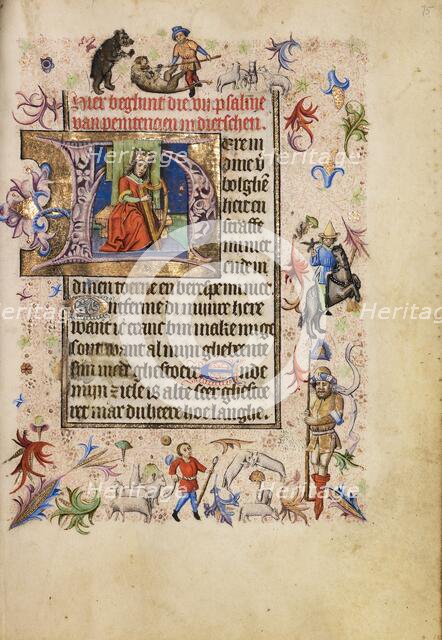 75
Hier beghint die vij psalme
van penitencien in dietschen.
Here in
dine v
bolghe
heit en
straffe
mi niet
ende in
dinen toerne en berespe mi niet
Ontferme di mins here
want ic cranc bin make mi ge
sont want al mijn ghebeente
sijn mede ghestoert Ende
mijn ziele is alte seer ghestoe
ret mar du here hoe langhe.
Heritage
Heritage
Heritage
Heritage
Heritage
Heritage